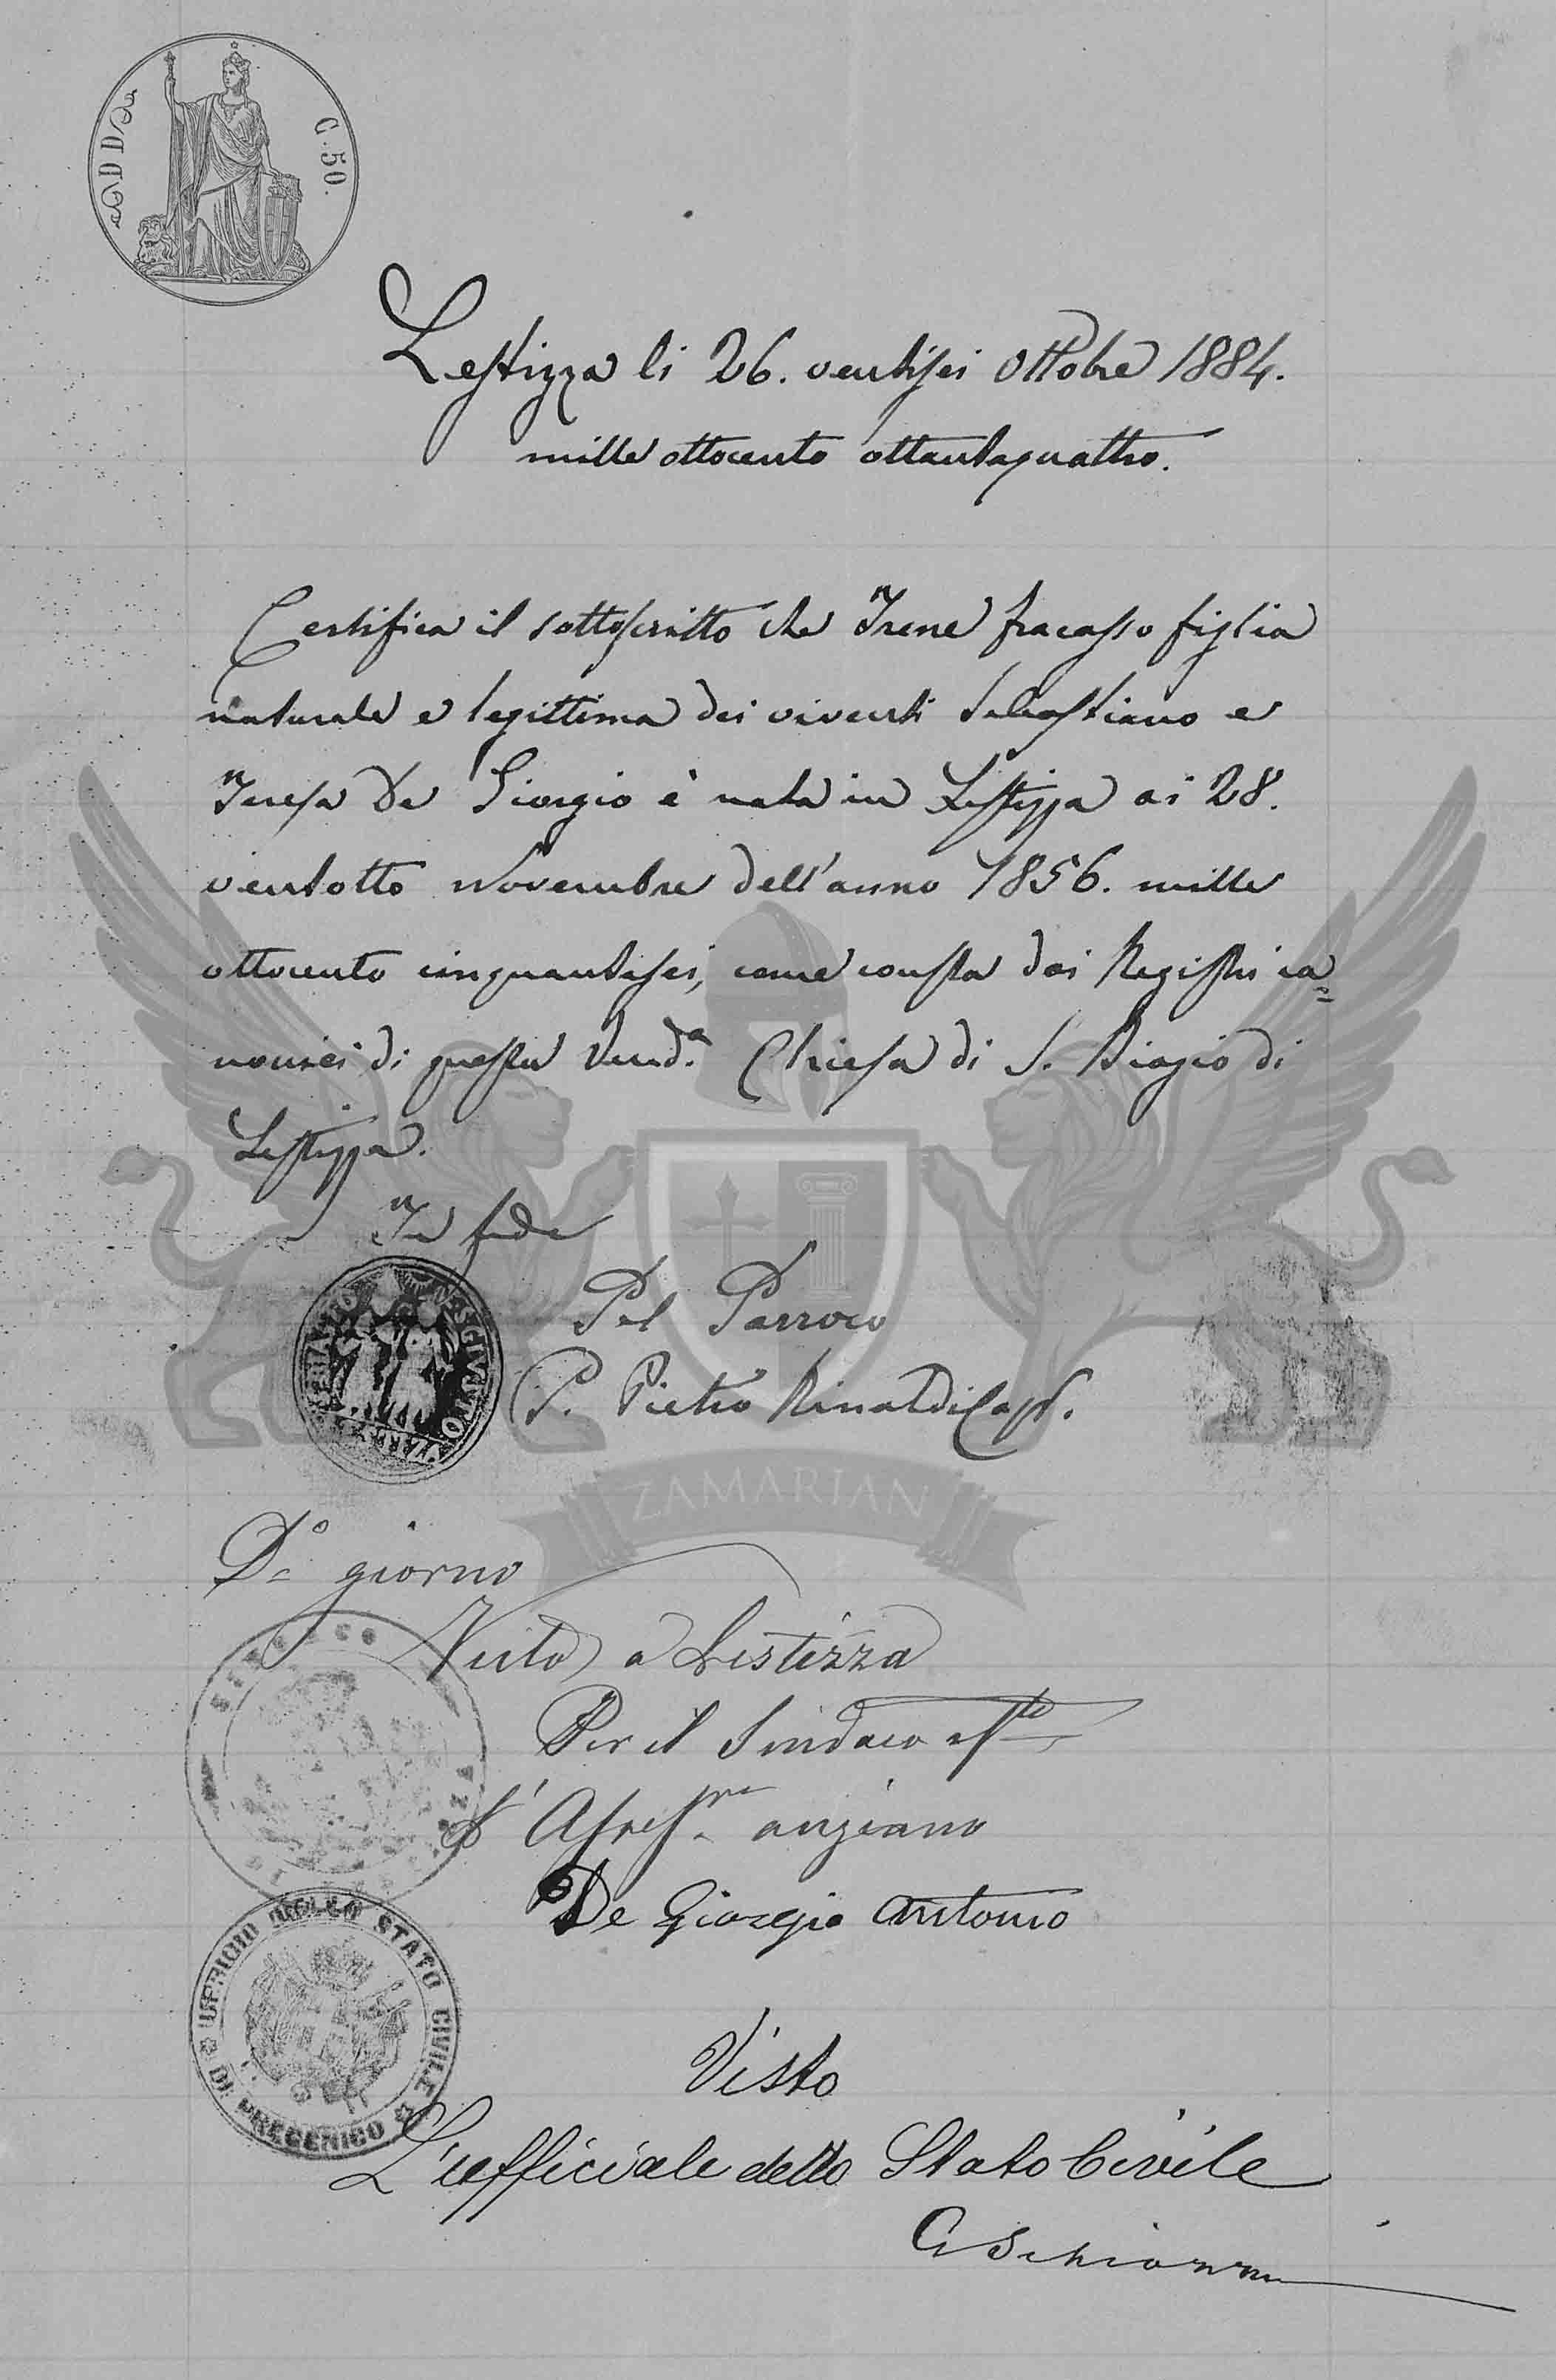 C. 50.
Lestizza li 26. ventisei Ottobre 1884.
mille ottocento ottantaquattro.
Certifica il sottoscritto che Irene Fracasso figlia
naturale e legittima dei viventi Sebastiano e
Teresa De Giorgio è nata in Lestizza ai 28.
ventotto Novembre dell'anno 1856. mille
ottocento cinquantasei, come consta dai Registri ca=
nonici di questa Vend.a Chiesa di S. Biagio di
Lestizza.
In fede
Pel Parroco
P. Pietro Rinaldi Capp.
ZAMARIAN
D.o giorno
Visto a Lestizza
SINDACO
Per il Sindaco
L' Assess.re anziano
De Giorgio Antonio
UFFICIO DELLO STATO CIVILE
DI PRECENICO
Visto
L'ufficiale dello Stato Civile